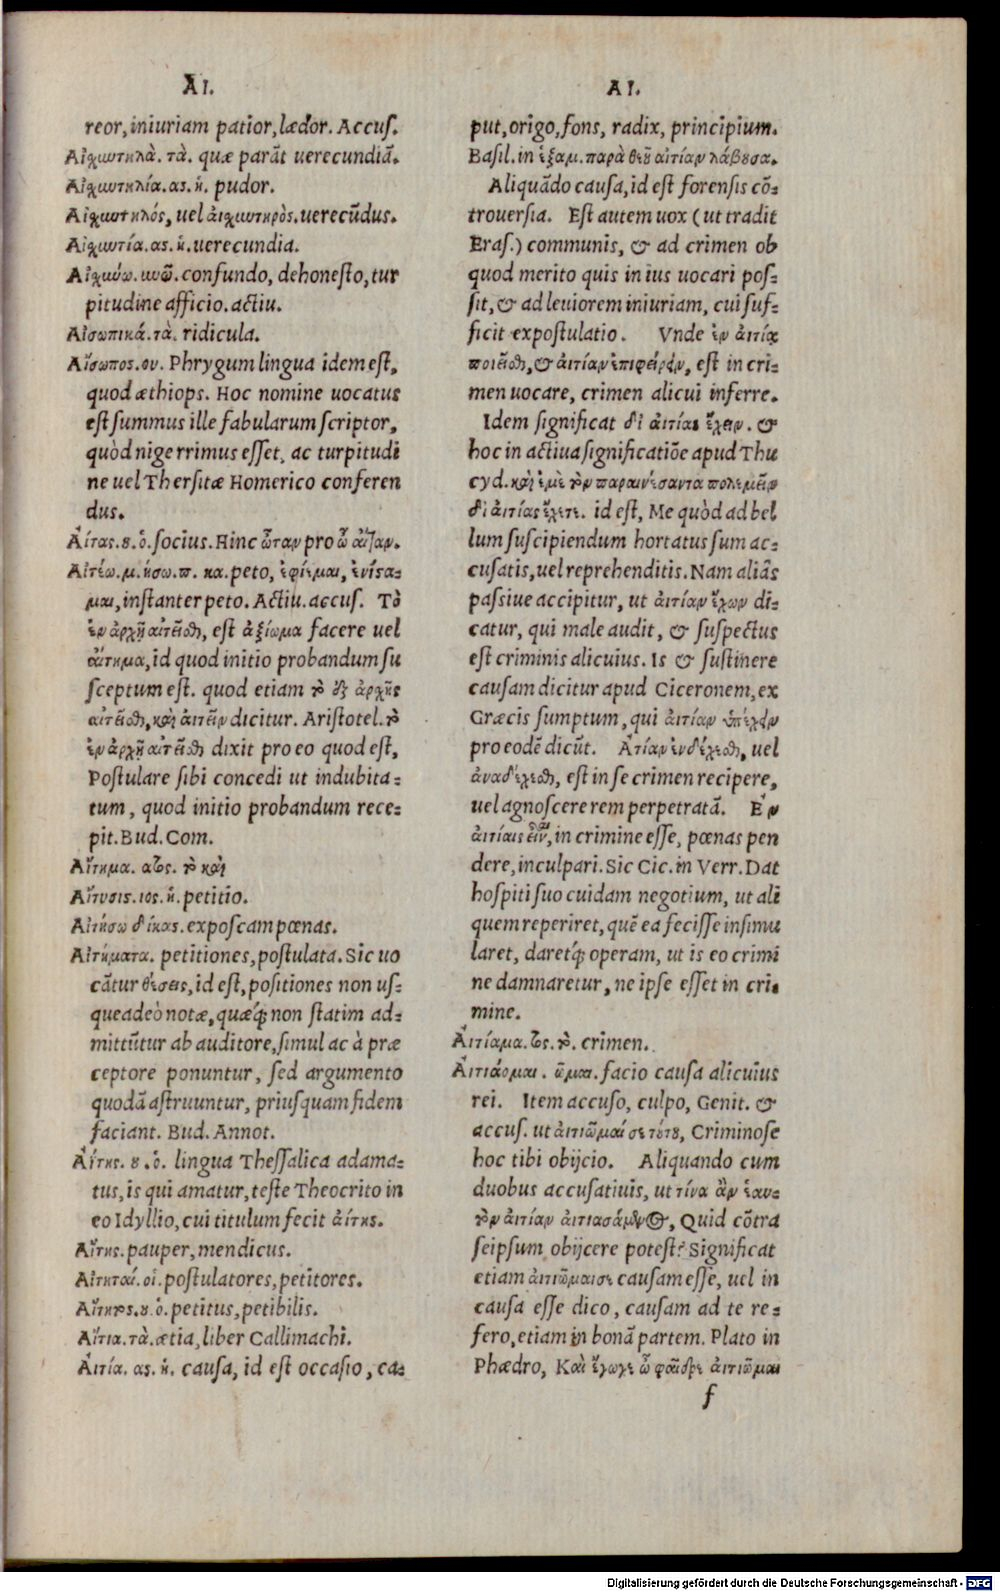 AI.
reor, iniuriam patior, lædor. Accus.
Αἰσχυντηλὰ. τὰ. quæ parāt uerecundiā.
Αἰσχυντηλία. ας. ἡ. pudor.
Αἰσχυντηλός, uel αἰσχυντηρὸς. uerecūdus.
Αἰσχυντία. ας. ἡ. uerecundia.
Αἰσχύνω. υνῶ. confundo, dehonesto, tur
pitudine afficio. actiu.
Αἰσωπικά. τὰ. ridicula.
Αἴσωπος. ου. Phrygum lingua idem est,
quod æthiops. Hoc nomine uocatus
est summus ille fabularum scriptor,
quòd nigerrimus esset, ac turpitudi
ne uel Thersitæ Homerico conferen
dus.
Ἀίτας. ου. ὁ. socius. Hinc ὦταν pro ὦ αἴταν.
Αἰτέω. μ. ήσω. π. κα. peto, ἐφίεμαι, ἐνίσα-
μαι, instanter peto. Actiu. accus. Τὸ
ἐν ἀρχῇ αἰτεῖσθαι, est ἀξίωμα facere uel
αἴτημα, id quod initio probandum su
sceptum est. quod etiam τὸ ἐξ ἀρχῆς
αἰτεῖσθαι, καὶ αἰτεῖν dicitur. Aristotel. τὸ
ἐν ἀρχῇ αἰτεῖσθαι dixit pro eo quod est,
Postulare sibi concedi ut indubita-
tum, quod initio probandum rece-
pit. Bud. Com.
Αἴτημα. ατος. τὸ καὶ
Αἴτυσις. ιος. ἡ. petitio.
Αἰτήσω δίκας. exposcam pœnas.
Αἰτήματα. petitiones, postulata. Sic uo
cātur θέσεις, id est, positiones non us-
queadeò notæ, quæq́ue non statim ad-
mittūtur ab auditore, simul ac à præ
ceptore ponuntur, sed argumento
quodā astruuntur, priusquam fidem
faciant. Bud. Annot.
Ἀίτης. ου. ὁ. lingua Thessalica adama-
tus, is qui amatur, teste Theocrito in
eo Idyllio, cui titulum fecit ἀίτης.
Αἴτης. pauper, mendicus.
Αἰτηταί. οἱ. postulatores, petitores.
Αἴτητος. ου. ὁ. petitus, petibilis.
Αἴτια. τὰ. ætia, liber Callimachi.
Αἰτία. ας. ἡ. causa, id est occasio, ca-
AI.
put, origo, fons, radix, principium.
Basil. in ἑξαμ. παρὰ θεοῦ αἰτίαν λάβουσα.
Aliquādo causa, id est forensis cō-
trouersia. Est autem uox (ut tradit
Eras.) communis, & ad crimen ob
quod merito quis in ius uocari pos-
sit, & ad leuiorem iniuriam, cui suf-
ficit expostulatio. Vnde ἐν αἰτίᾳ
ποιεῖσθαι, & αἰτίαν ἐπιφέρειν, est in cri-
men uocare, crimen alicui inferre.
Idem significat δι᾽ αἰτίας ἔχειν. &
hoc in actiua significatiōe apud Thu
cyd. καὶ ἐμὲ τὸν παραινέσαντα πολεμεῖν
δι᾽ αἰτίας ἔχετε. id est, Me quòd ad bel
lum suscipiendum hortatus sum ac-
cusatis, uel reprehenditis. Nam aliâs
passiue accipitur, ut αἰτίαν ἔχων di-
catur, qui male audit, & suspectus
est criminis alicuius. Is & sustinere
causam dicitur apud Ciceronem, ex
Græcis sumptum, qui αἰτίαν ὑπέχειν
pro eodē dicūt. Αἰτίαν ἐνδέχεσθαι, uel
ἀναδέχεσθαι, est in se crimen recipere,
uel agnoscere rem perpetratā. Ἐν
αἰτίαις εἶναι, in crimine esse, pœnas pen
dere, inculpari. Sic Cic. in Verr. Dat
hospiti suo cuidam negotium, ut ali
quem reperiret, quē ea fecisse insimu
laret, daretq́ue operam, ut is eo crimi
ne damnaretur, ne ipse esset in cri-
mine.
Αἰτίαμα. τος. τὸ. crimen.
Αἰτιάομαι. ῶμαι. facio causa alicuius
rei. Item accuso, culpo, Genit. &
accus. ut αἰτιῶμαί σε τούτου, Criminose
hoc tibi obijcio. Aliquando cum
duobus accusatiuis, ut τίνα ἂν ἑαυ-
τὸν αἰτίαν αἰτιασάμενος, Quid cōtra
seipsum obijcere potest? Significat
etiam αἰτιῶμαι σε causam esse, uel in
causa esse dico, causam ad te re-
fero, etiam in bonā partem. Plato in
Phædro, Καὶ ἔγωγε ὦ φαῖδρε αἰτιῶμαι
f
Digitalisierung gefördert durch die Deutsche Forschungsgemeinschaft - DFG